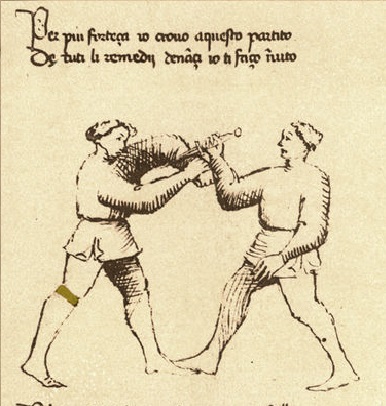 Per piu forteça io trovo aquesto partito
De tuti li remedij denançi io ti faço invito